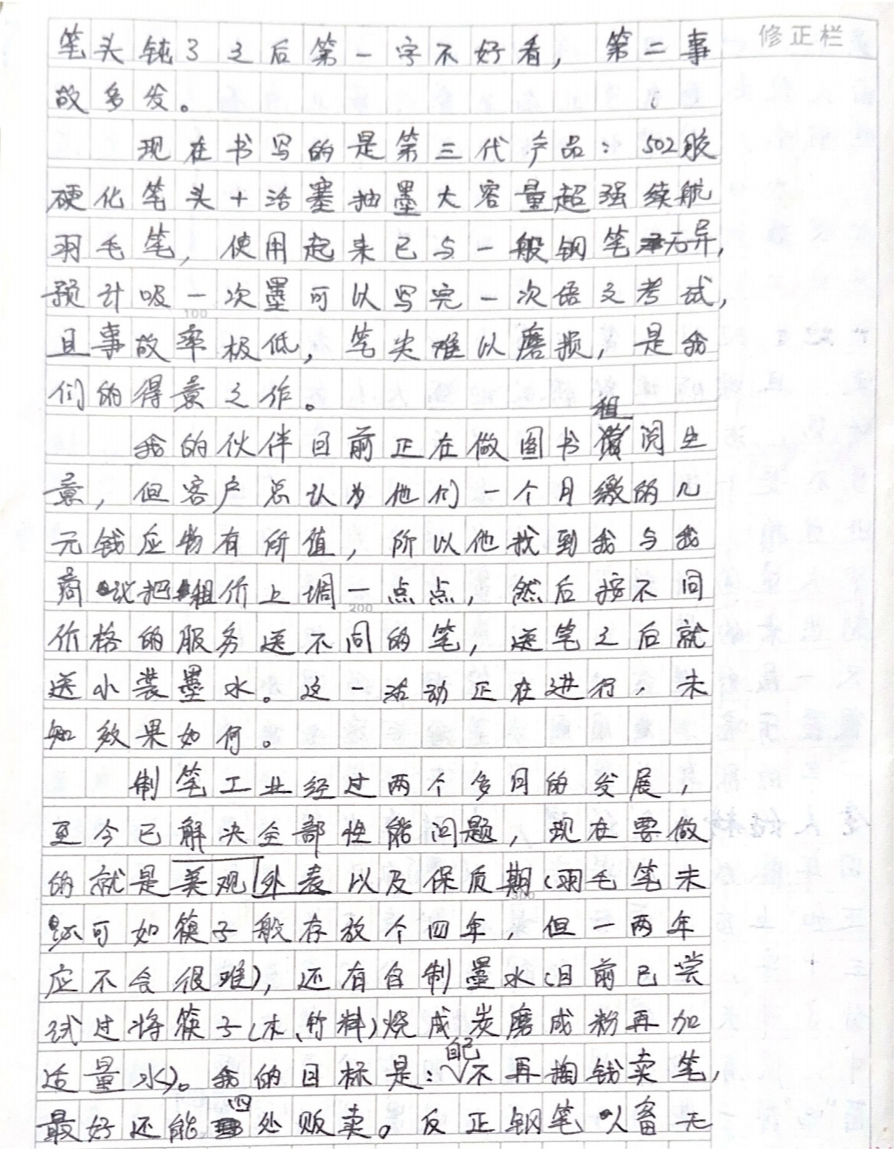 修正栏
笔头钝了之后第一字不好看，第二事
故多发。
现在书写的是第三代产品：502胶
硬化笔头+活塞抽墨大容量超强续航
羽毛笔，使用起来已与一般钢笔无异，
预计吸一次墨可以写完一次语文考试，
100
且事故率极低，笔尖难以磨损，是我
们的得意之作。
我的伙伴目前正在做图书租阅生
意，但客户总认为他们一个月缴的几
元钱应物有所值，所以他找到我与我
商议把租价上调一点点，然后按不同
200
价格的服务送不同的笔，送笔之后就
送小装墨水。这一活动正在进行，未
知效果如何。
制笔工业经过两个多月的发展，
至今已解决全部性能问题，现在要做
的就是美观外表以及保质期（羽毛笔未
300
必可如筷子般存放个四年，但一两年
应不会很难），还有自制墨水（目前已尝
试过将筷子（木、竹料）烧成炭磨成粉再加
适量水）。我的目标是：自己不再掏钱买笔，
最好还能四处贩卖。反正钢笔人畜无